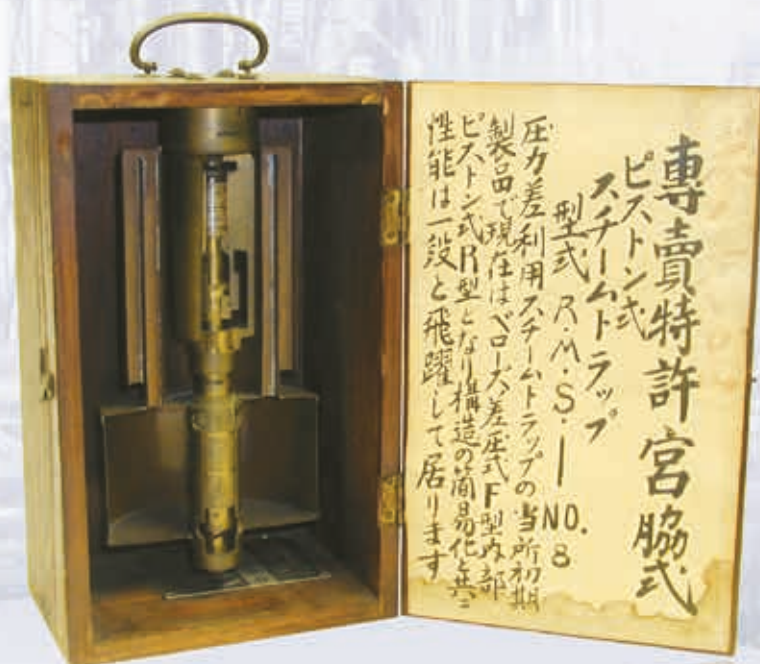 專賣特許宮脇式
ピストン式
スチームトラップ
型式 R.M.S.-1 NO.8
圧力差利用スチームトラップの当所初期
製品で現在はベローズ差圧式F型内部
ピストン式R型となり構造の簡易化と共ニ
性能は一段と飛躍して居ります